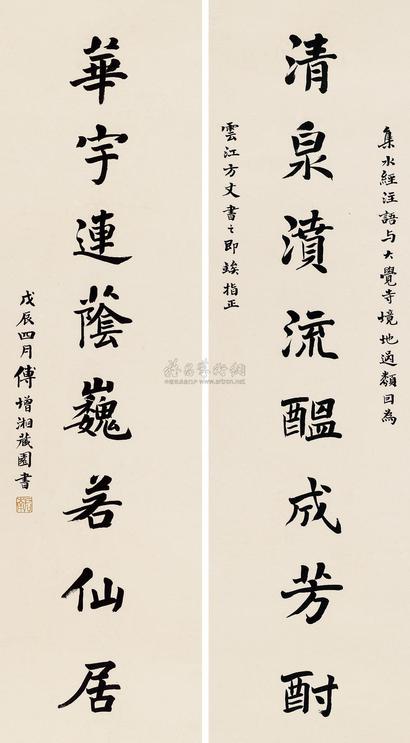 集水經注語与大覺寺境地適類因為
清泉濆流醞成芳酎
雲江方丈書之即竢指正
華宇連蔭巍若仙居
戊辰四月傅增湘藏園書
雅昌藝術網